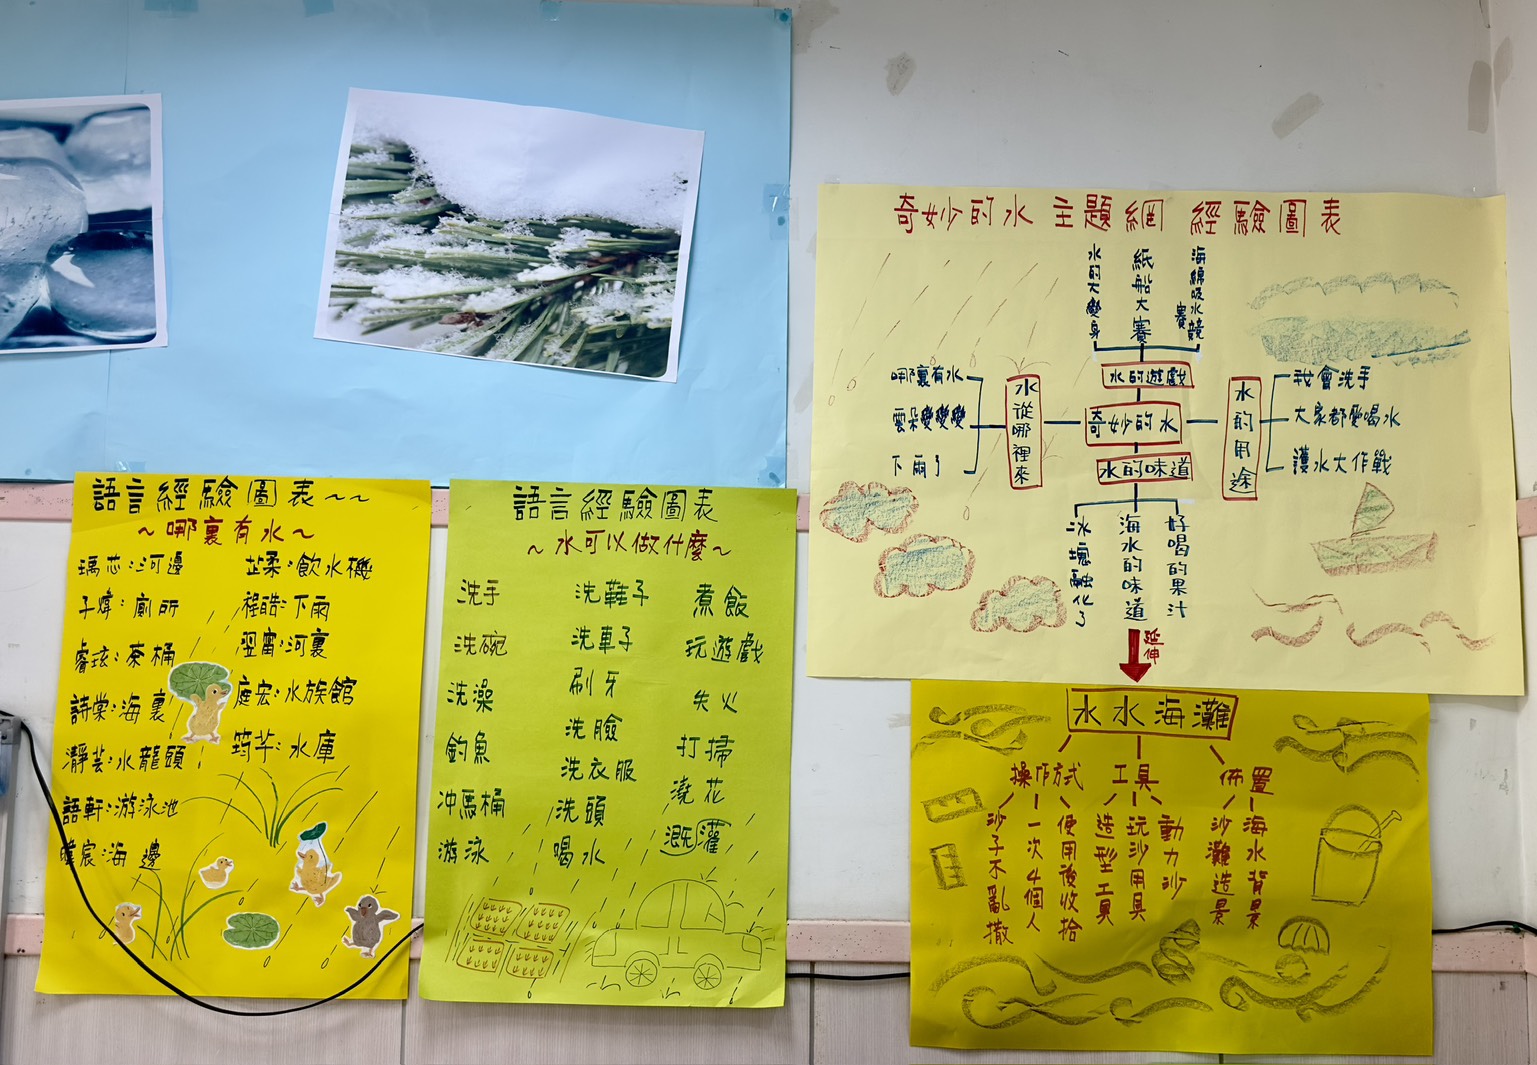 語言經驗圖表~~
~哪裏有水~
瑀芯:河邊
子煒:廁所
睿玹:茶桶
詩棠:海裏
瀞芸:水龍頭
語軒:游泳池
宸:海邊
芷柔:飲水機
程皓:下雨
翌甯:河裏
庭宏:水族館
筠芊:水庫
語言經驗圖表
~水可以做什麼~
洗手
洗碗
洗澡
釣魚
沖馬桶
游泳
洗鞋子
洗車子
刷牙
洗臉
洗衣服
洗頭
喝水
煮飯
玩遊戲
失火
打掃
澆花
溉灌
奇妙的水 主題網 經驗圖表
水的大變身
紙船大賽
海綿吸水競賽
水的遊戲
哪裏有水
雲朵變變變
下雨了
水從哪裡來
奇妙的水
水的用途
我會洗手
大家都愛喝水
護水大作戰
水的味道
冰塊融化了
海水的味道
好喝的果汁
延伸
水水海灘
操作方式
沙子不亂撒
一次4個人
使用後收拾
工具
造型工具
玩沙用具
動力沙
佈置
沙灘造景
海水背景